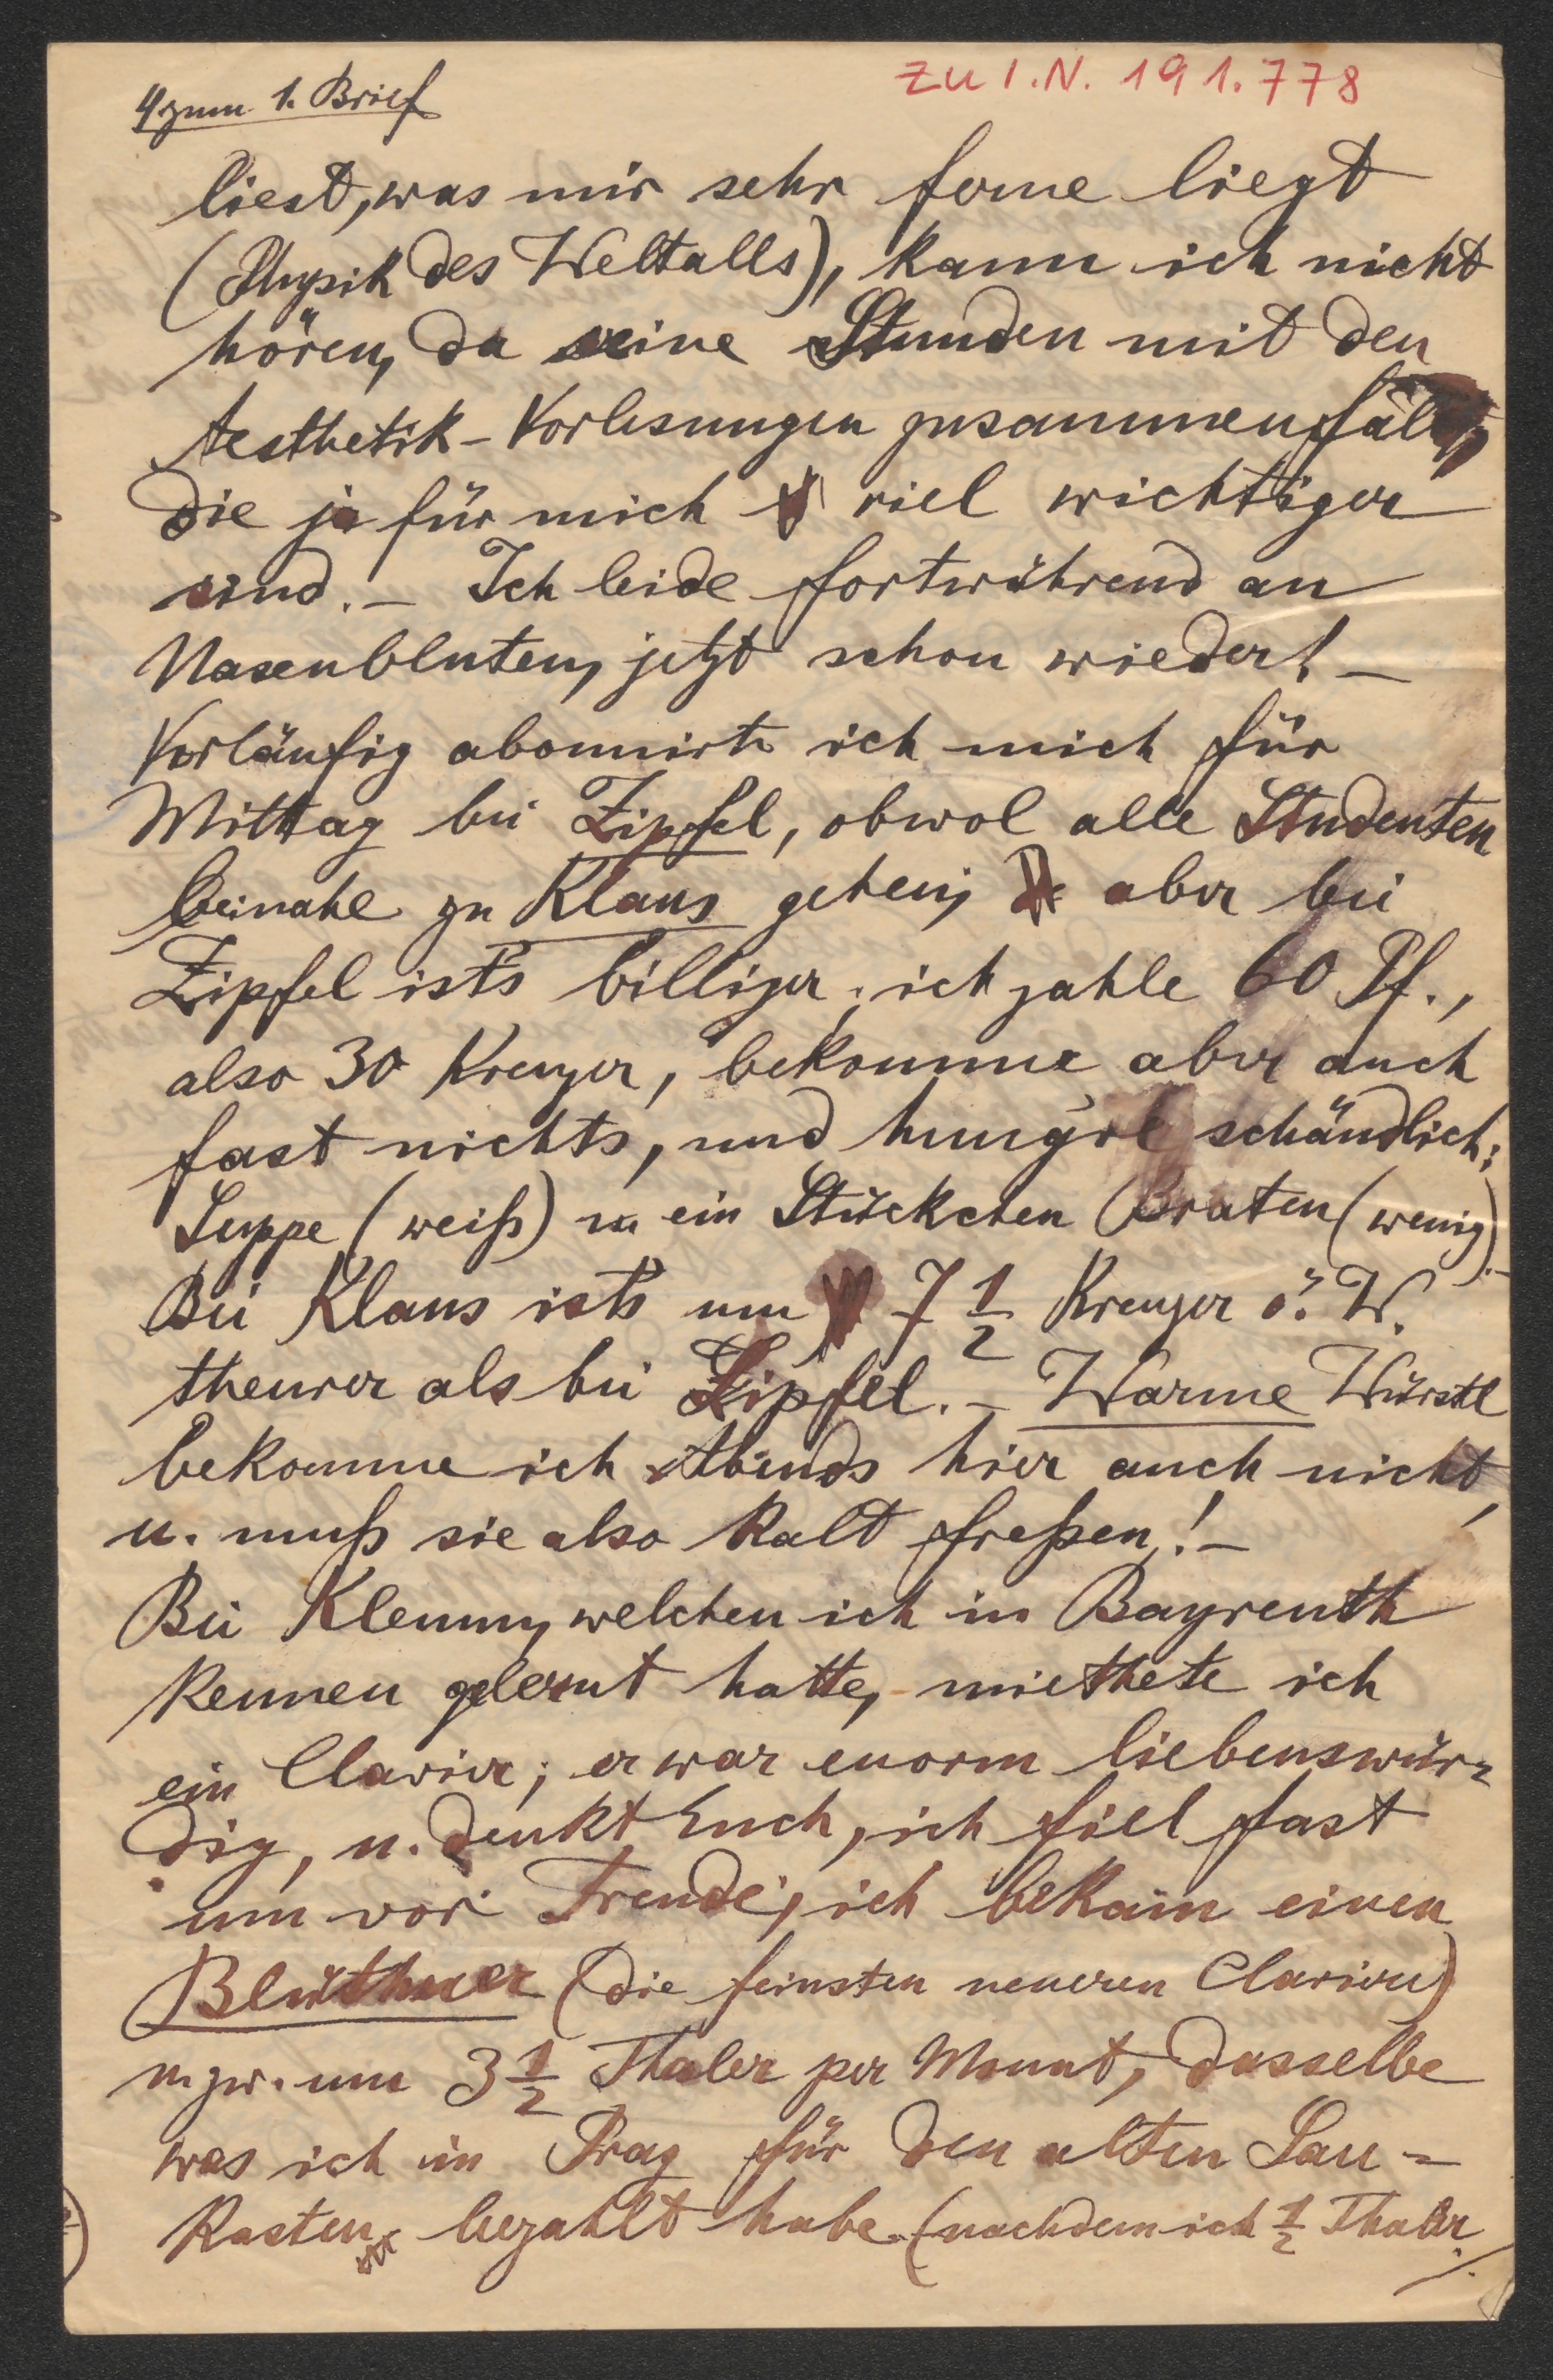 4 zum 1. Brief
ZU I.N. 191.778
liest, was mir sehr ferne liegt
(Physik des Weltalls), kann ich nicht
hören, da seine Stunden mit den
Aesthetik-Vorlesungen zusammenfällt,
die ja für mich viel wichtiger
sind. – Ich leide fortwährend an
Nasenbluten, jetzt schon wieder! –
Vorläufig abonnirte ich mich für
Mittag bei Zipfel, obwol alle Studenten
beinahe zu Klaus gehen; aber bei
Zipfel ist's billiger; ich zahle 60 Pf.,
also 30 Kreuzer, bekomme aber auch
fast nichts, und hungre schändlich:
Suppe (weiß) u ein Stückchen Braten (wenig). –
Bei Klaus ist's um 7 1/2 Kreuzer ö. W.
theurer als bei Zipfel. – Warme Würstl
bekomme ich Abends hier auch nicht,
u. muß sie also kalt freßen! –
Bei Klemm, welchen ich in Bayreuth
kennen gelernt hatte, miethete ich
ein Clavier; er war enorm liebenswür=
dig, u. denkt Euch, ich fiel fast
um vor Freude, ich bekam einen
Blüthner (die feinsten neueren Claviere)
u. zw. um 3 1/2 Thaler per Monat, dasselbe
was ich in Prag für den alten Sau=
kasten bezahlt habe. (nachdem ich 1/2 Thaler